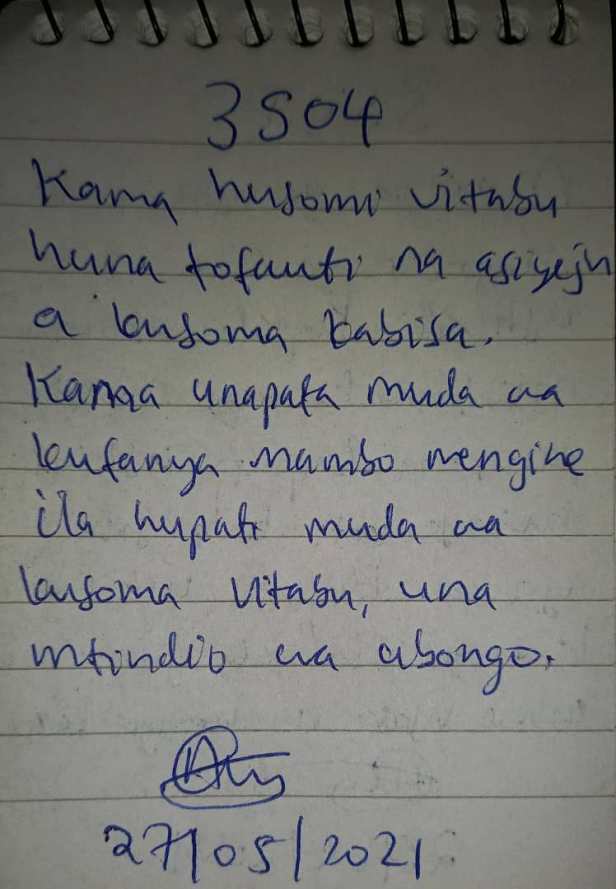 3504
Kama husomi vitabu
huna tofauti na asiyeju
a kusoma kabisa.
Kama unapata muda wa
kufanya mambo mengine
ila hupati muda wa
kusoma vitabu, una
mtindio wa ubongo.
27/05/2021